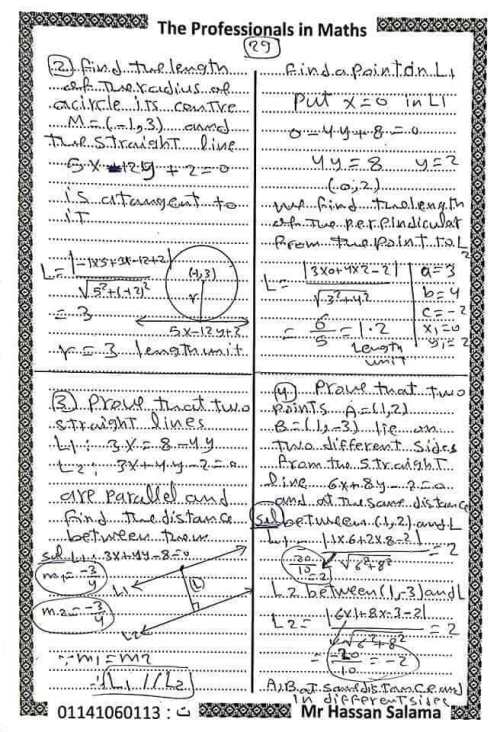 The Professionals in Maths
29
2. find the length
of the radius of
acircle its centre
M = (-1,3) and
the straight line
5x -12y + 2 = 0
is atangent to
iT
L = |-1x5+3x-12+2|
√5²+(-12)²
(-1,3)
r
= 3
5x-12y+2
r = 3 length unit
find a point on L1
put x=0 in L1
0-4y+8=0
4y=8 y=2
(0,2)
we find the length
of the perpindicular
from the point to L2
L = |3x0+4x2-2|
√3²+4²
= 6/5 = 1.2
Length
unit
a=3
b=4
c=-2
x1=0
y1=2
3. Prove that two
straight lines
L1: 3x=8-4y
L2: 3x+4y-2=0
are parallel and
find the distance
between them
sol L1: 3x+4y-8=0
m1=-3/4
L1
(L)
m2=-3/4
L2
∵ m1=m2
∴ L1 // L2
4. Prove that two
points A=(1,2)
B=(1,-3) lie on
two different sides
from the straight
line 6x+8y-2=0
and at the same distance
sol between (1,2) and L
L1 = |1x6+2x8-2| = 2
√6²+8²
20/10 = 2
L2 between (1,-3) and L
L2 = |6x1+8x-3-2| = 2
√6²+8²
= -20/10 = -2
A,B at same distance and
in different sides
01141060113 : ت
Mr Hassan Salama